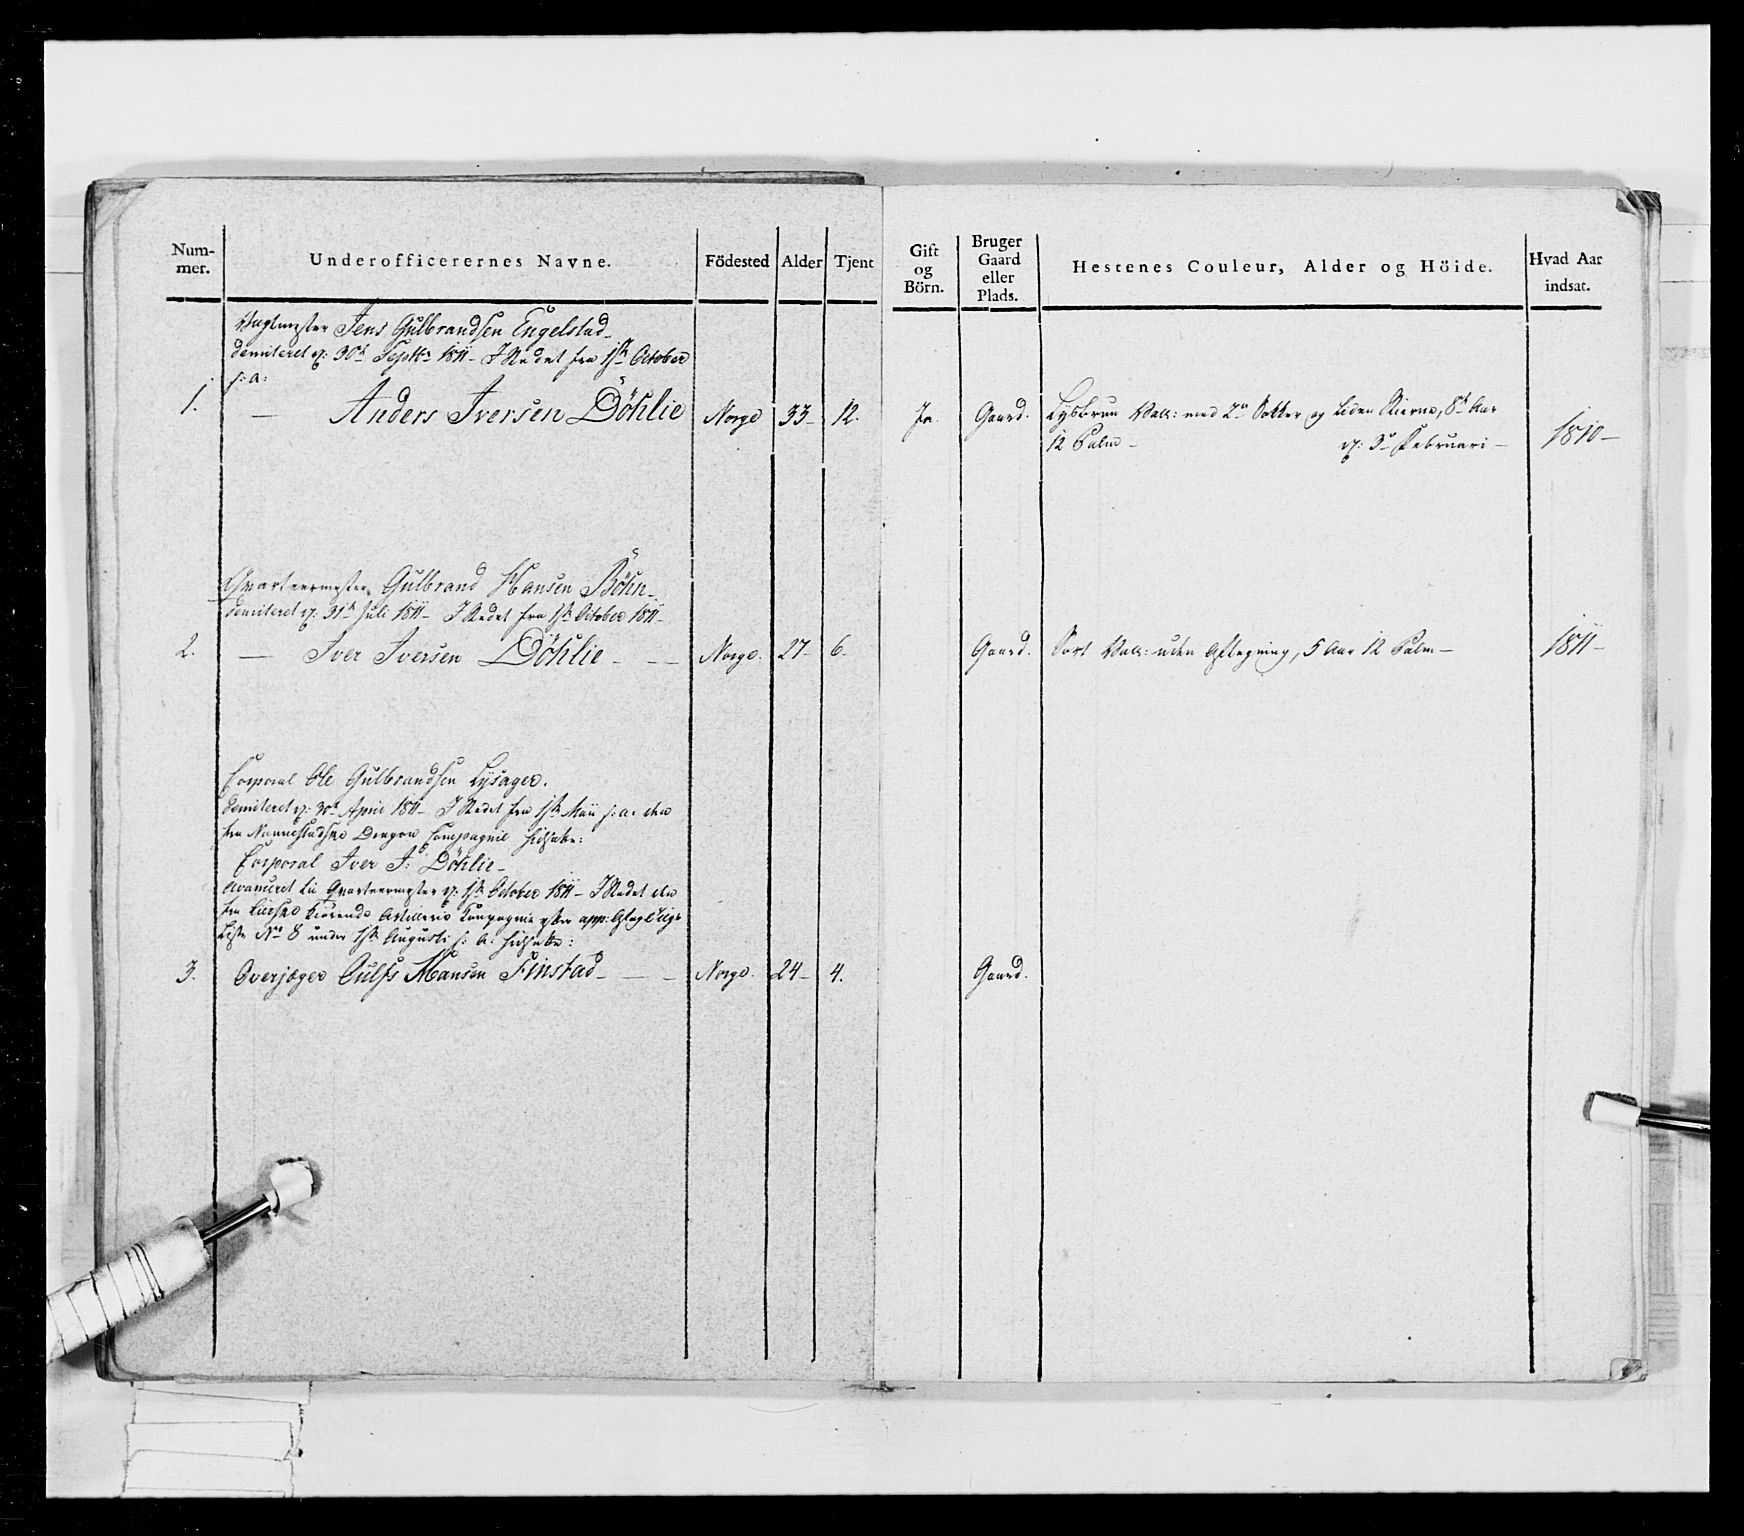 Num-
mer.
Underofficerernes Navne.
Födested
Alder
Tjent
Gift
og
Börn.
Bruger
Gaard
eller
Plads.
Hestenes Couleur, Alder og Höide.
Hvad Aar
indsat.
Vagtmester Jens Gulbrandsen Engelstad
demiteret d: 30t Septbr 1811 - I Stedet fra 1ste October
s: a:
1. — Anders Iversen Döhlie Norge 33 - 12. Ja. Gaard. Lysbrun Vall: med 2de Sokker og liden Stierne, 8t Aar 1810 —
12 Palm - d: 3de Februari -
Qvarteermester Gulbrand Hansen Böhn
demiteret d: 31t Juli 1811 - I Stedet fra 1ste October 1811 -
2. — Iver Iversen Döhlie - — — Norge. 27 - 6 - Gaard. Sort Vall: uden Aftegning, 5 Aar 12 Palm - 1811 -
Corporal Ole Gulbrandsen Lysager.
demiteret d: 30t April 1811 - I Stedet fra 1ste Maii s: a: den
fra Nannestadske Dragon Compagnie
Corporal Iver I: Döhlie -
Avanceret til Qvarteermester d: 1ste October 1811 - I Stedet den
fra Kiörende Artillerie Compagnie
Liste No 8 under 1ste Augusti s: a:
3. Overjæger Gulbr Hansen Finstad - — - Norge. 24 - 4. Gaard.